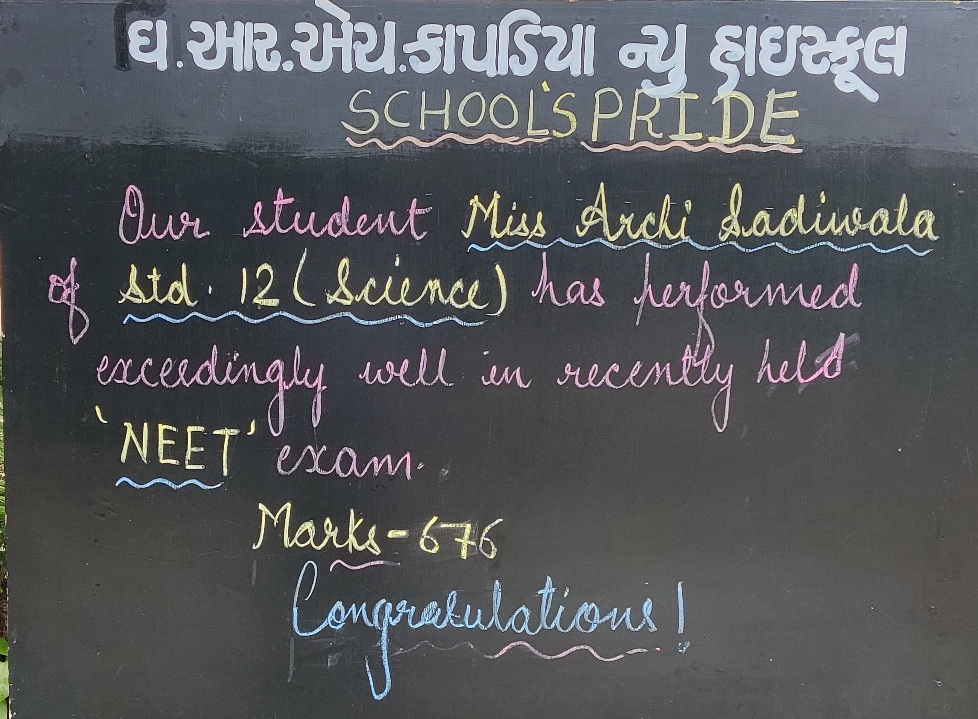 ધ.આર.એચ.કાપડિયા ન્યુ હાઇસ્કૂલ
SCHOOL'S PRIDE
Our student Miss Archi Sadiwala
of Std. 12 (Science) has performed
exceedingly well in recently held
'NEET' exam.
Marks-676
Congratulations!